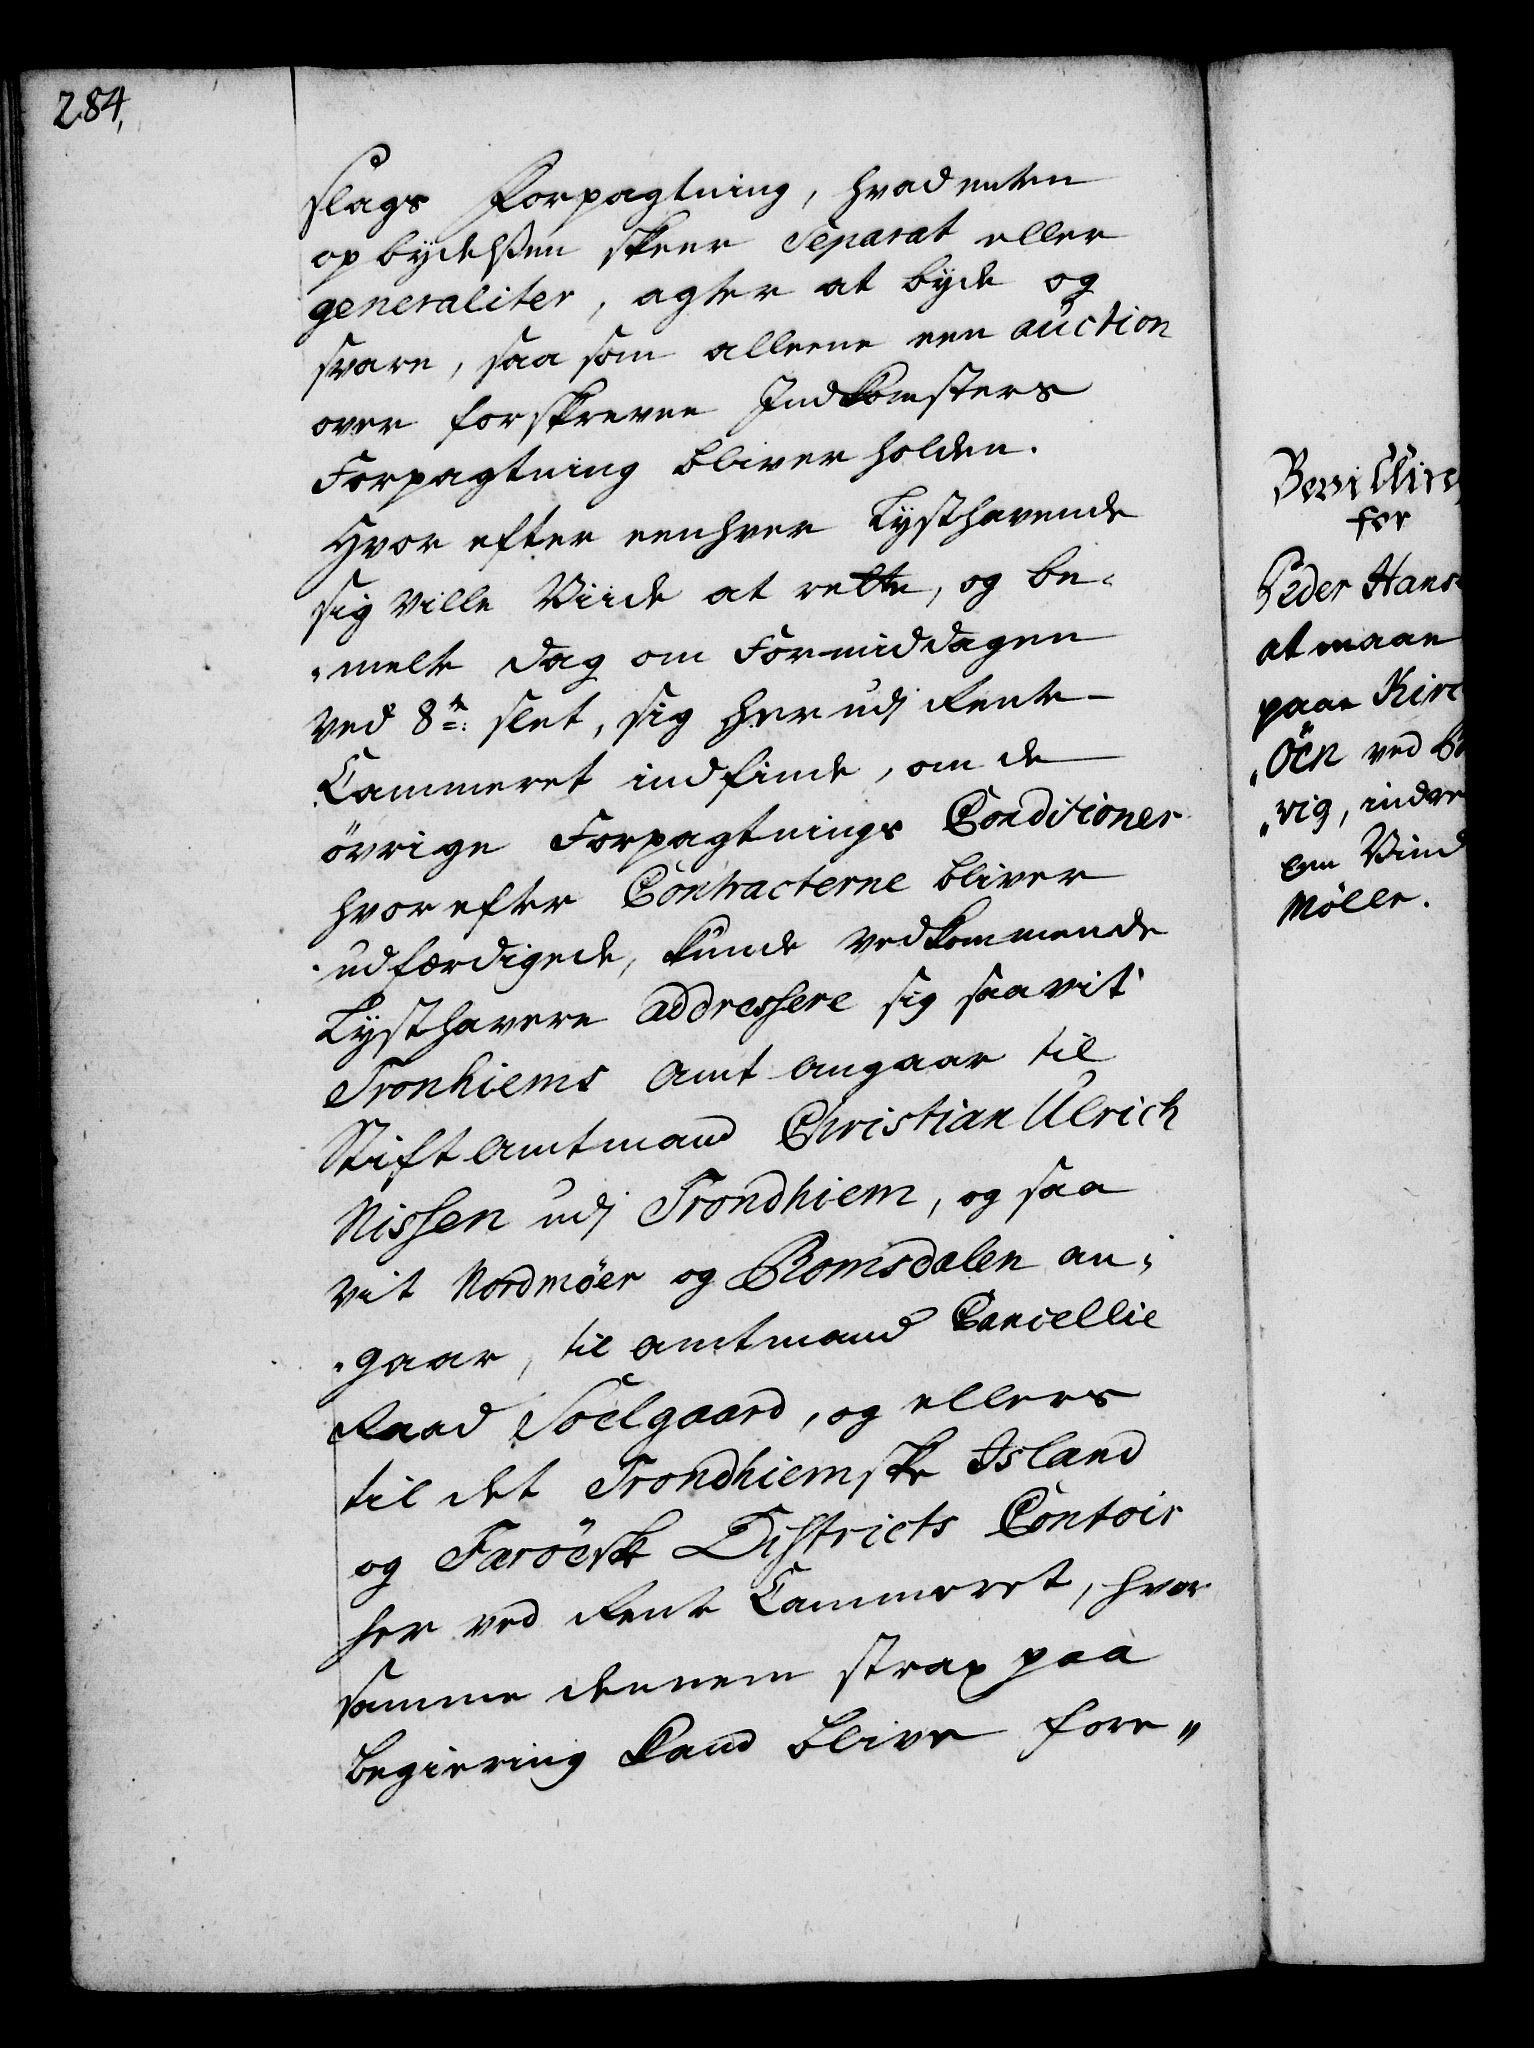 284,
slags Forpagtning, hvadenten
opbÿdelsen skeer Separat eller
generaliter, agter at bÿde og
svare, saasom alleene een auction
over forskrevne Indkomsters
Forpagtning bliver holden.
Hvorefter eenhver Lÿsthavende
sig ville Viide at rette, og be-
„melte dag om Formiddagen
ved 8te: slet, sig her udj Rente-
Cammeret indfinde, om de
övrige Forpagtnings Conditioner
hvorefter Contracterne bliver
udfærdigede, kunde vedkommende
Lÿsthavere addressere sig saavit
Tronhiems Amt angaar til
Stiftamtmand Christian Ulrich
Nissen udj Trondhiem, og saa
vit Nordmöer og Romsdalen an-
„gaar, til Amtmand Cancellie
Raad Soelgaard, og ellers
til det Trondhiemske Island
og Færöesk Districts Contoir
her ved Rente Cammeret, hvor
samme dennem strax paa
begiering kand blive fore„
Bevilling
for
Peder Hans
at maae
paae Kirc
„Öen ved
„vig, indre
een Vind
Mölle.